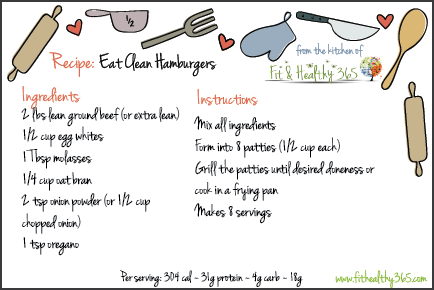 1/2
from the kitchen of
Fit & Healthy 365
Recipe: Eat Clean Hamburgers
Ingredients
2 lbs lean ground beef (or extra lean)
1/2 cup egg whites
1 Tbsp molasses
1/4 cup oat bran
2 tsp onion powder (or 1/2 cup
chopped onion)
1 tsp oregano
Instructions
Mix all ingredients
Form into 8 patties (1/2 cup each)
Grill the patties until desired doneness or
cook in a frying pan
Makes 8 servings
Per serving: 304 cal ~ 31g protein ~ 4g carb ~ 18g
www.fithealthy365.com